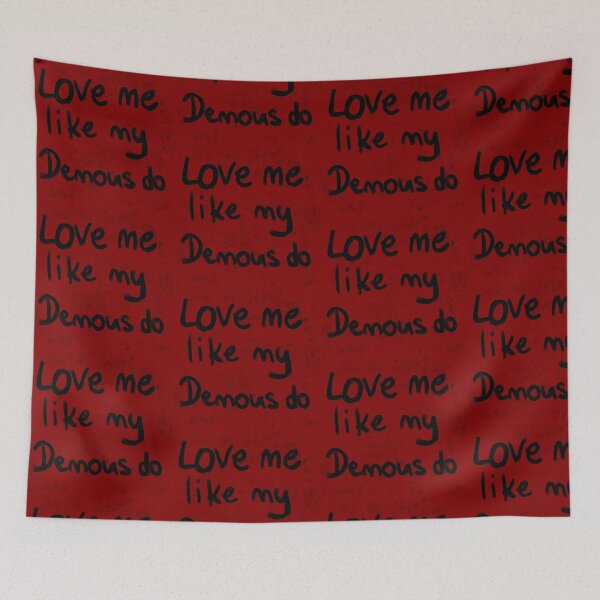 Love me
like my
Demous do
Love me
like my
Demous do
Love me
like my
Demous do
Demous do
Love me
like my
Demous do
Love me
like my
Demous do
Love me
like my
Love me
like my
Demous do
Love me
like my
Demous do
Love me
like my
Demous do
Demous do
Love me
like my
Demous
Love me
like my
Demous
Love me
like my